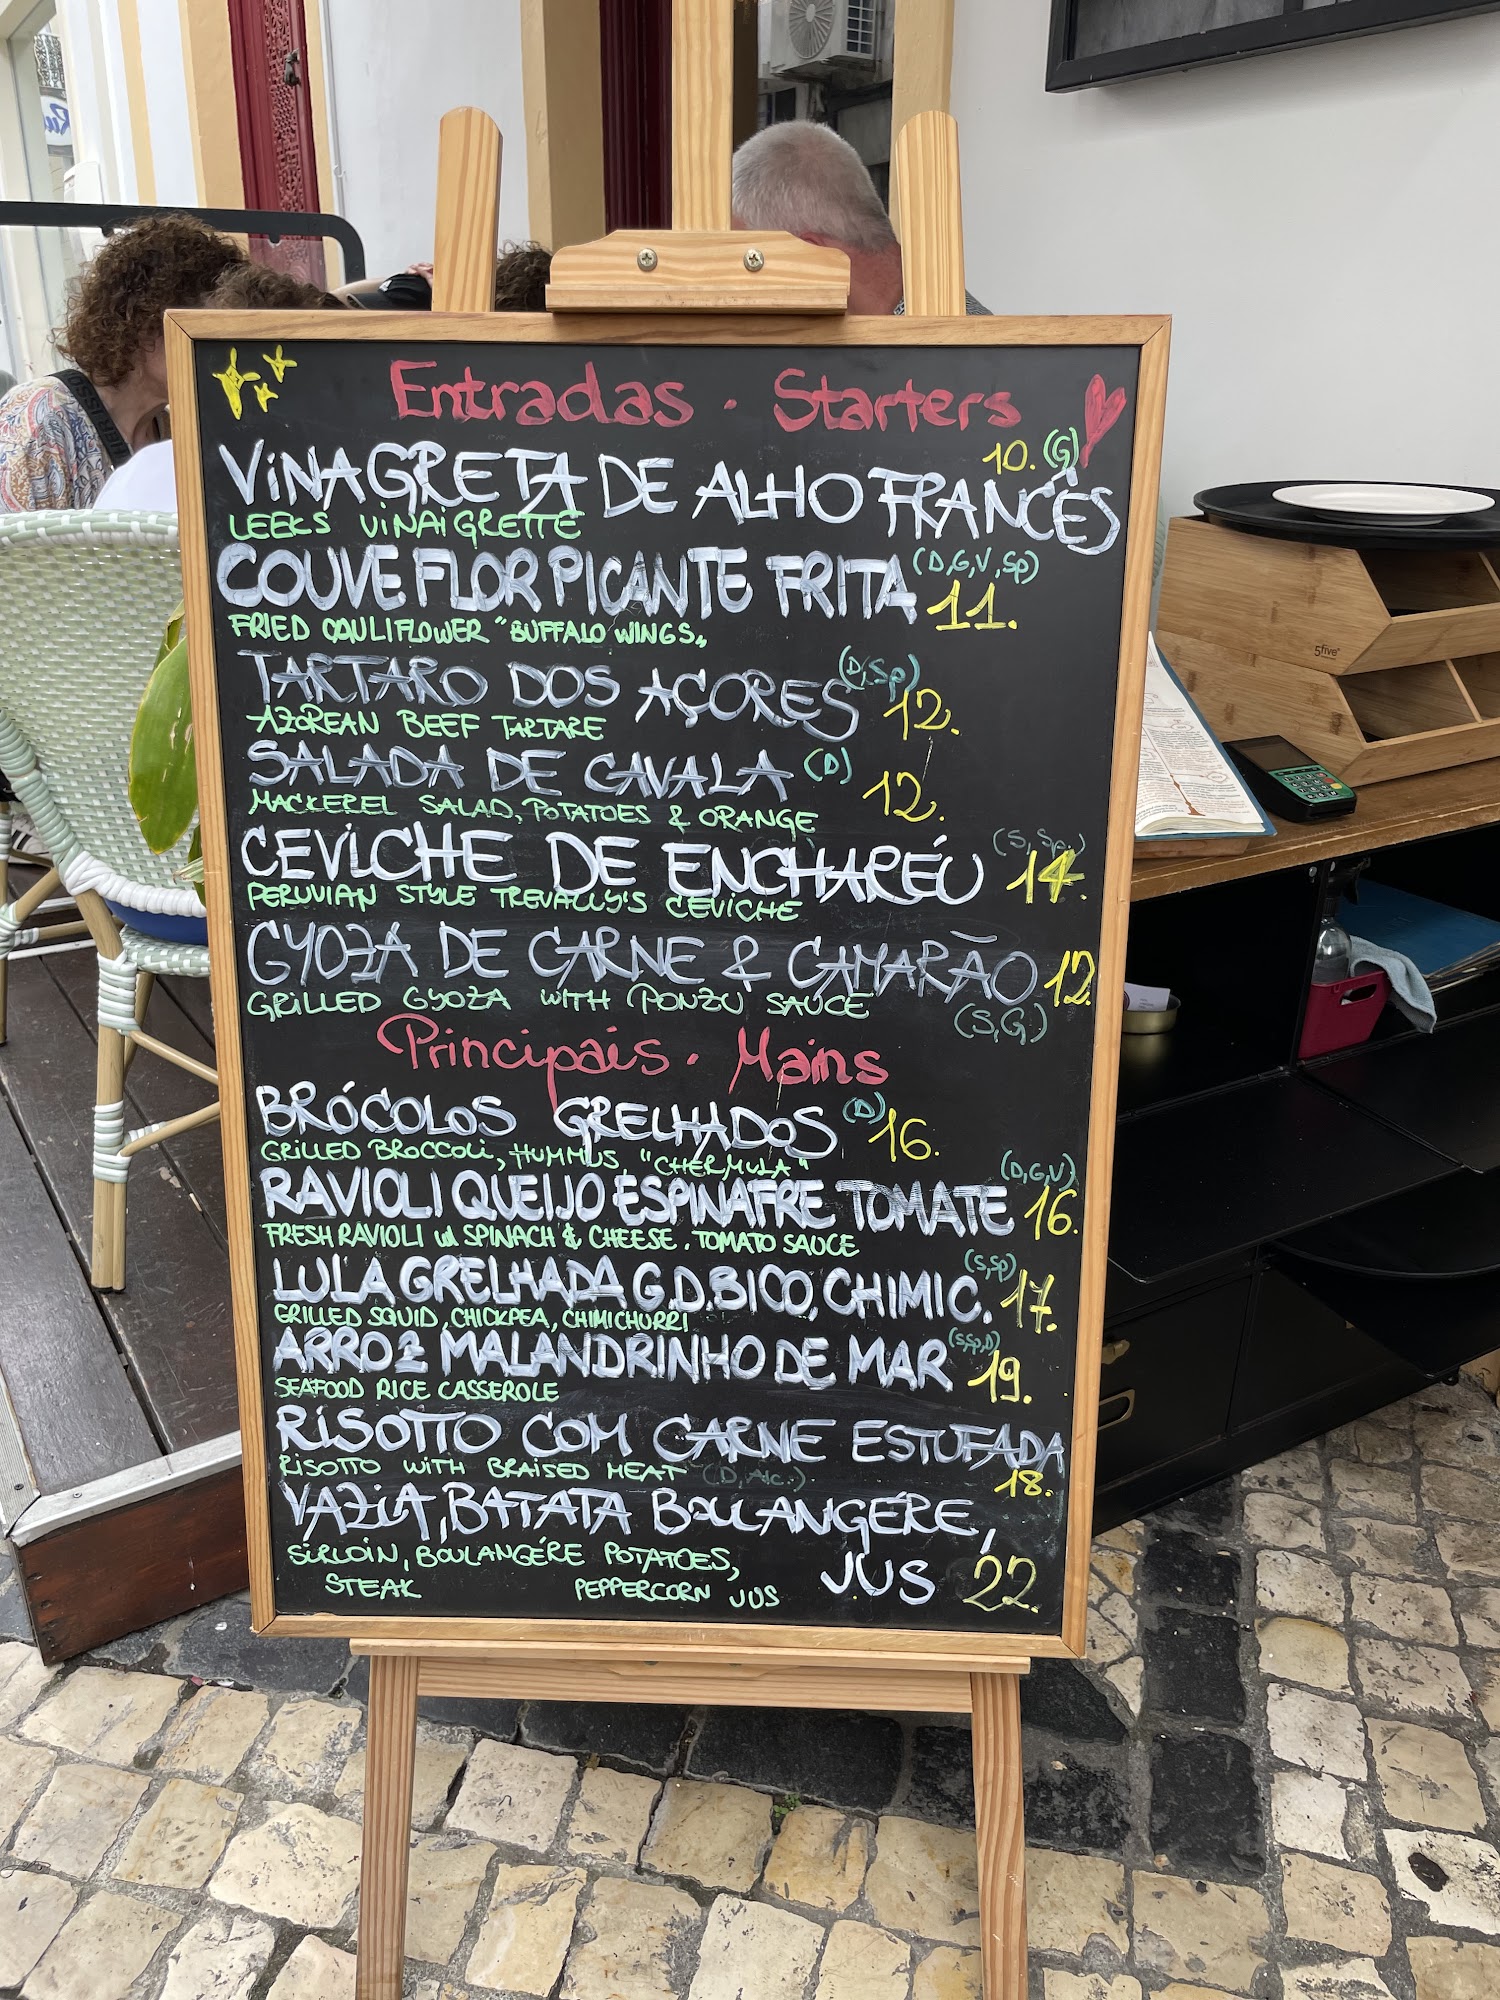 Entradas . Starters
10. (G)
VINAGRETA DE ALHO FRANCÊS
LEEKS VINAIGRETTE
COUVE.FLOR PICANTE FRITA (D,G,V,Sp) 11.
FRIED CAULIFLOWER "BUFFALO WINGS"
TARTARO DOS AÇORES (D,Sp) 12.
AZOREAN BEEF TARTARE
SALADA DE CAVALA (D) 12.
MACKEREL SALAD, POTATOES & ORANGE
CEVICHE DE ENCHARÉU (S,Sp.) 14.
PERUVIAN STYLE TREVALLY'S CEVICHE
GYOZA DE CARNE & CAMARÃO 12.
GRILLED GYOZA WITH PONZU SAUCE (S,G)
Principais . Mains
BRÓCOLOS GRELHADOS (D) 16.
GRILLED BROCCOLI, HUMMUS, "CHERMULA"
RAVIOLI QUEIJO ESPINAFRE TOMATE (D,G,V) 16.
FRESH RAVIOLI W/ SPINACH & CHEESE. TOMATO SAUCE
LULA GRELHADA G.D.BICO, CHIMIC. (S,Sp) 17.
GRILLED SQUID, CHICKPEA, CHIMICHURRI
ARROZ MALANDRINHO DE MAR (S,Sp,D) 19.
SEAFOOD RICE CASSEROLE
RISOTTO COM CARNE ESTUFADA
RISOTTO WITH BRAISED MEAT (D, Alc.) 18.
VAZIA, BATATA BOULANGÉRE,
JUS 22.
SIRLOIN, BOULANGÉRE POTATOES,
STEAK PEPPERCORN JUS
5five